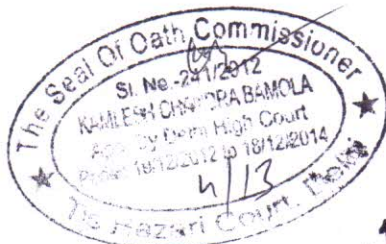 The Seal Of Oath Commissioner
Sl. No.-241/2012
KAMLESH CHANDRA BAMOLA
App. By Delhi High Court
Period 18/12/2012 to 18/12/2014
4/13
Tis Hazari Court, Delhi